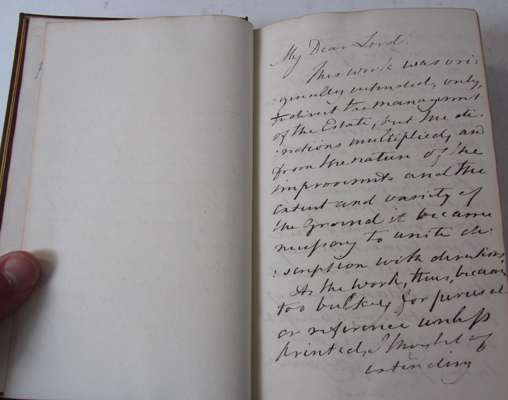 My Dear Lord.
This work was ori:
ginally intended, only,
to direct the managment
of the Estate, but the di:
:rections multiplied, and
from the nature of the
improvments and the
extent and variety of
the Ground it became
necessary to unite de:
:scription with directions.
As the work, thus, became
too bulkey for perusal
or reference unless
printed, I thought of
extending